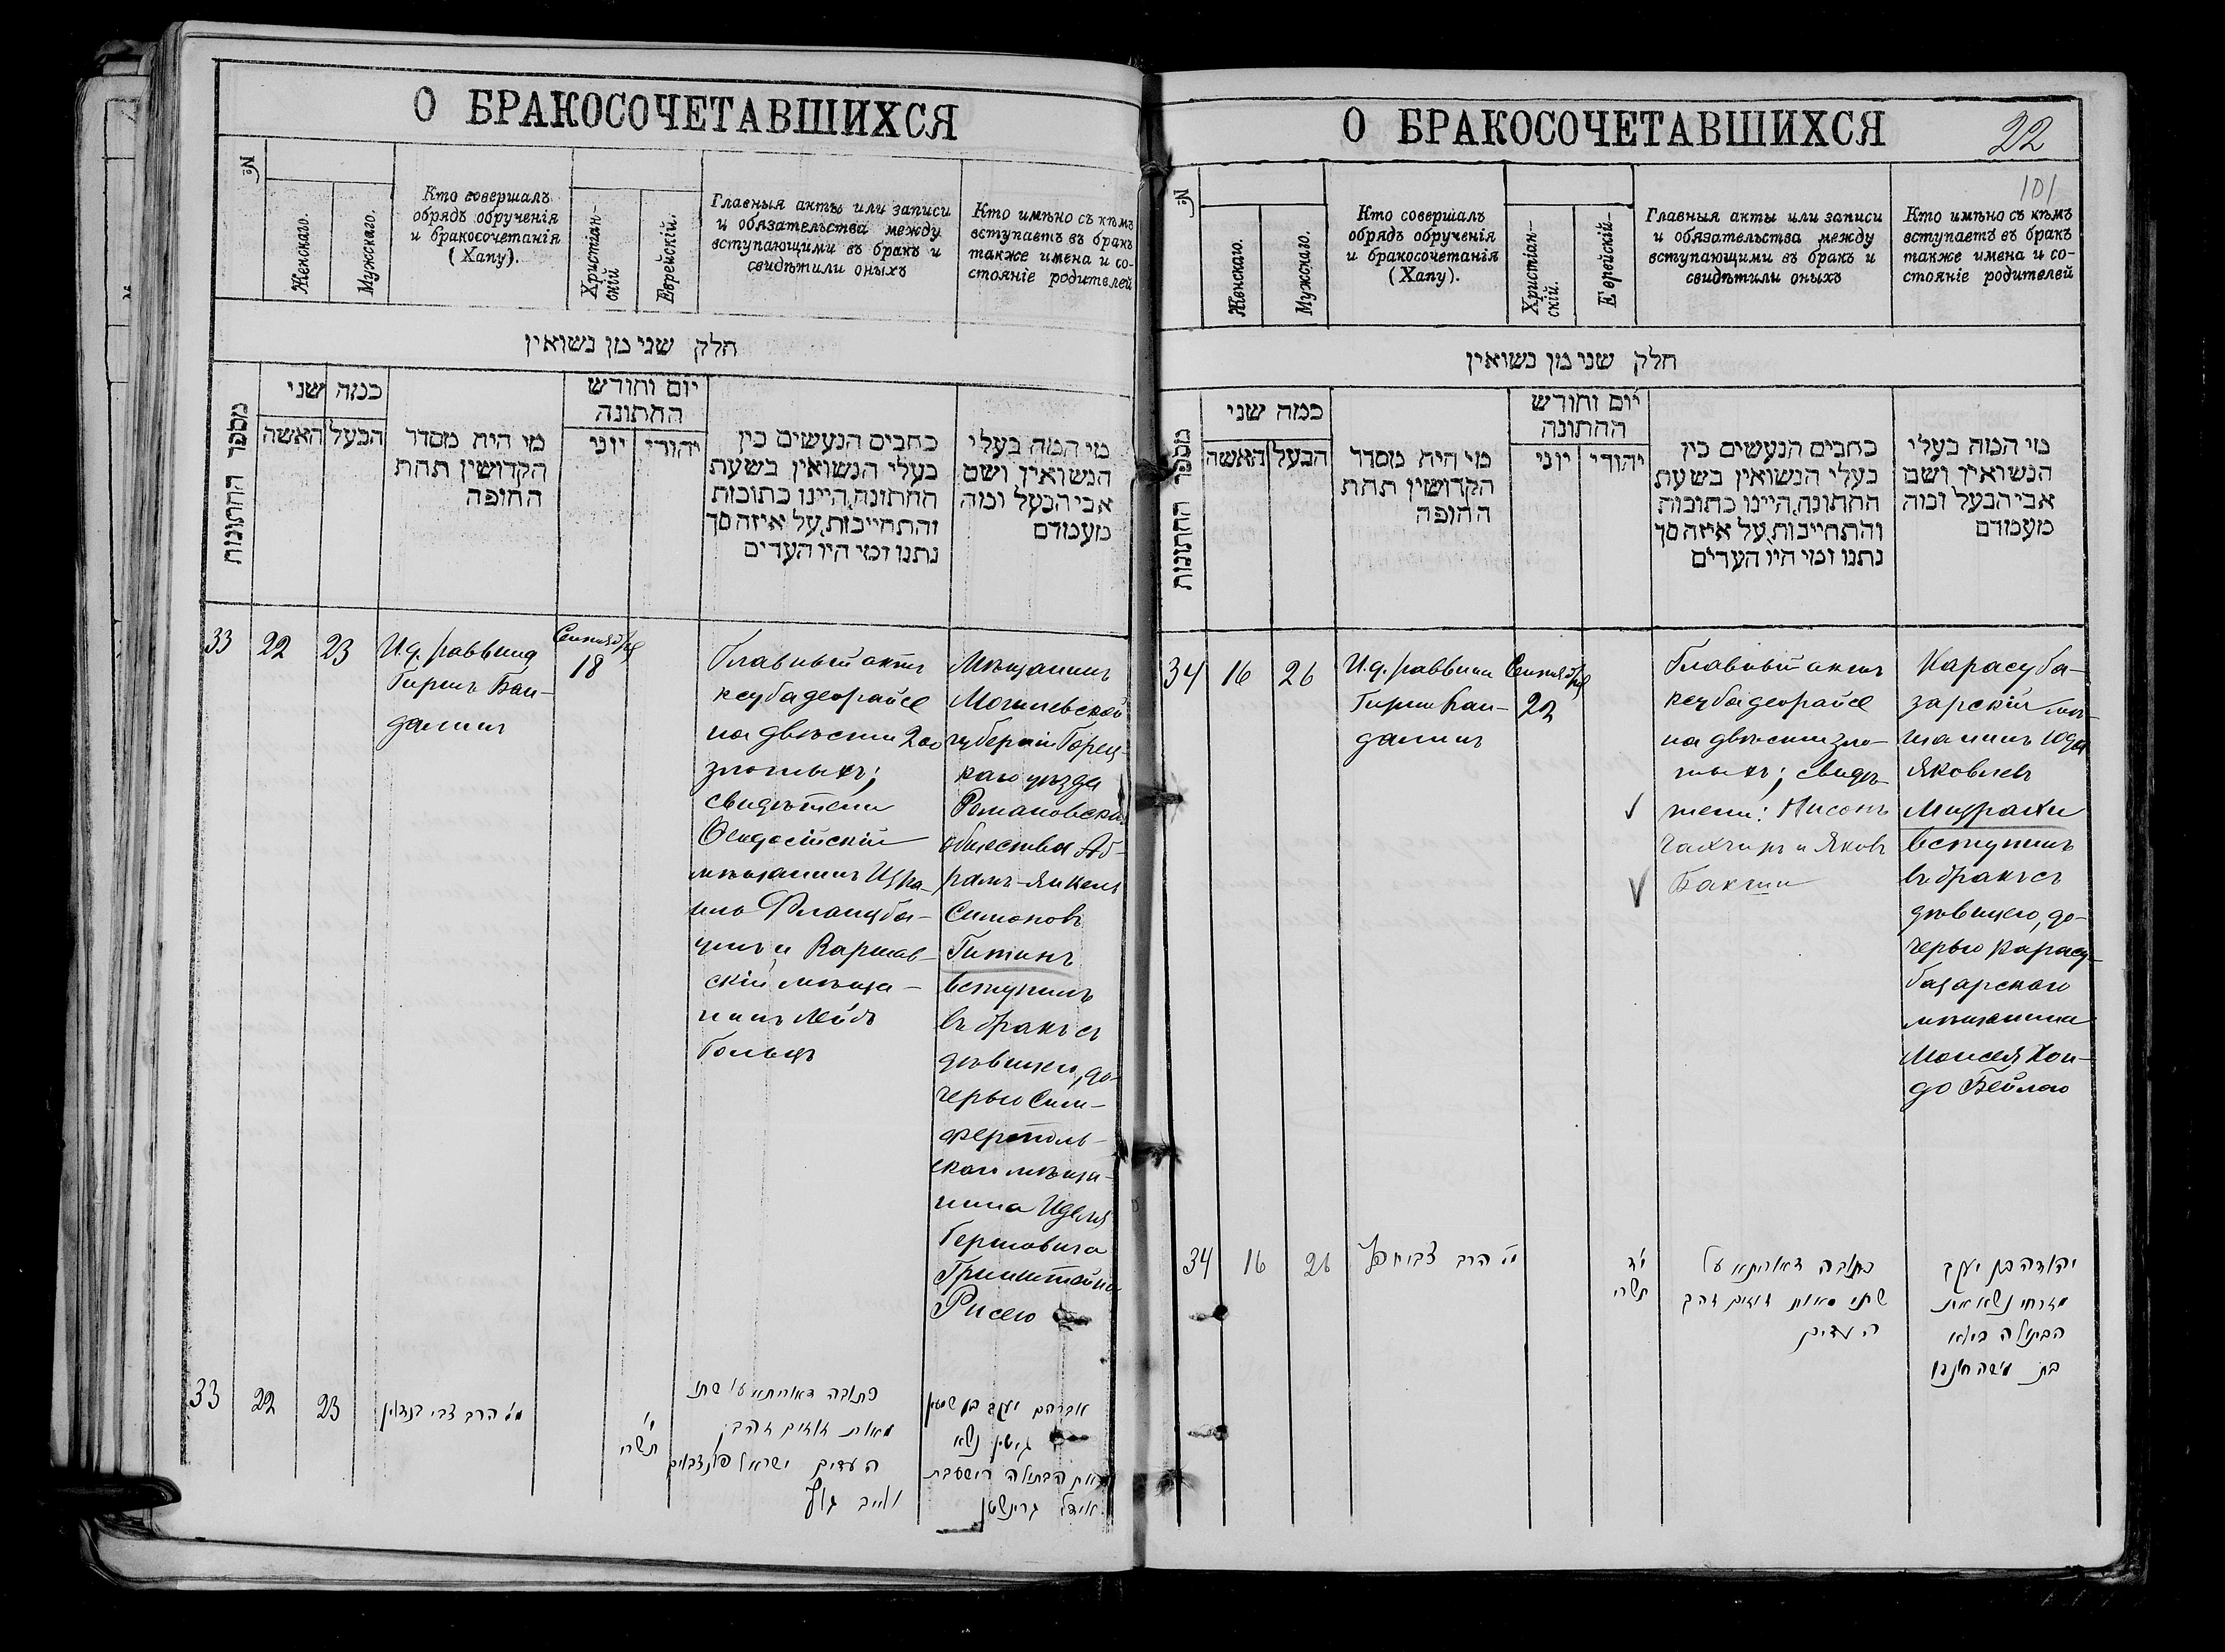 О БРАКОСОЧЕТАВШИХСЯ
№
Женскаго.
Мужскаго.
Кто совершалъ
обрядъ обрученія
и бракосочетанія
(Хапу).
Христіан-
скій
Еврейскій.
Главныя акты или записи
и обязательства между
вступающими въ бракъ и
свидѣтили оныхъ
Кто имѣно съ кѣмъ
вступаетъ въ бракъ
также имена и со-
стояніе родителей
חלק שני מן נשואין
מספר החתונות
כמה שני
האשה
הבעל
מי היה מסדר
הקדושין תחת
החופה
יום וחודש
החתונה
יוני
יהודי
כתבים הנעשים בין
בעלי הנשואין בשעת
החתונה, היינו כתובות
והתחייבות, על איזה סך
נתנו ומי היו העדים
מי המה בעלי
הנשואין ושם
אבי הבעל ומה
מעמדם
33
22
23
И. д. раввина
Гиршъ Бан-
далинъ
Сентября
18
Главный актъ
ксубадеорайсе
на двѣсти 200
злотыхъ;
свидѣтели
Ѳеодосійскій
мѣщанинъ Изра-
иль Фланцба-
умъ и Варшав-
скій мѣща-
нинъ Лейбъ
Гольцъ
Мѣщанинъ
Могилевской
губерніи Горец-
каго уѣзда
Романовскаго
общества Аб-
рамъ-Янкель
Симоновъ
Гитинъ
вступилъ
въ бракъ съ
дѣвицею, до-
черью Сим-
ферополь-
скаго мѣща-
нина Иделя
Гершовича
Гринштейна
Рисею
33
22
23
הרב צבי בנדאלין
י'
תשרי
כתובה דאורייתא על שתי
מאות זוזים זהב
העדים ישראל פלנצבוים
ולייב גולץ
אברהם יעקב בן שמעון
גיטין נשא
את הבתולה רישא בת
אידל גרינשטיין
О БРАКОСОЧЕТАВШИХСЯ
22
101
№
Женскаго.
Мужскаго.
Кто совершалъ
обрядъ обрученія
и бракосочетанія
(Хапу).
Христіан-
скій.
Еврейскій
Главныя акты или записи
и обязательства между
вступающими въ бракъ и
свидѣтили оныхъ
Кто имѣно съ кѣмъ
вступаетъ въ бракъ
также имена и со-
стояніе родителей
חלק שני מן נשואין
מספר החתונות
כמה שני
האשה
הבעל
מי היה מסדר
הקדושין תחת
החופה
יום וחודש
החתונה
יוני
יהודי
כתבים הנעשים בין
בעלי הנשואין בשעת
החתונה, היינו כתובות
והתחייבות, על איזה סך
נתנו ומי היו העדים
מי המה בעלי
הנשואין ושם
אבי הבעל ומה
מעמדם
34
16
26
И. д. раввина
Гиршъ Бан-
далинъ
Сентября
22
Главный актъ
ксубадеорайсе
на двѣсти зло-
тыхъ; свидѣ-
тели: Нисонъ
и Яковъ
Бакши
Карасуба-
зарскій мѣ-
щанинъ Юда
Яковлевъ
Мизрахи
вступилъ
въ бракъ съ
дѣвицею, до-
черью Карасу-
базарскаго
мѣщанина
Моисея Хон-
до Бейлою
34
16
26
הרב צבי
י"ד
תשרי
כתובה דאורייתא על
שתי מאות זוזים זהב
העדים
יהודה בן יעקב
מזרחי נשא את
הבתולה ביילא
בת משה חונדו